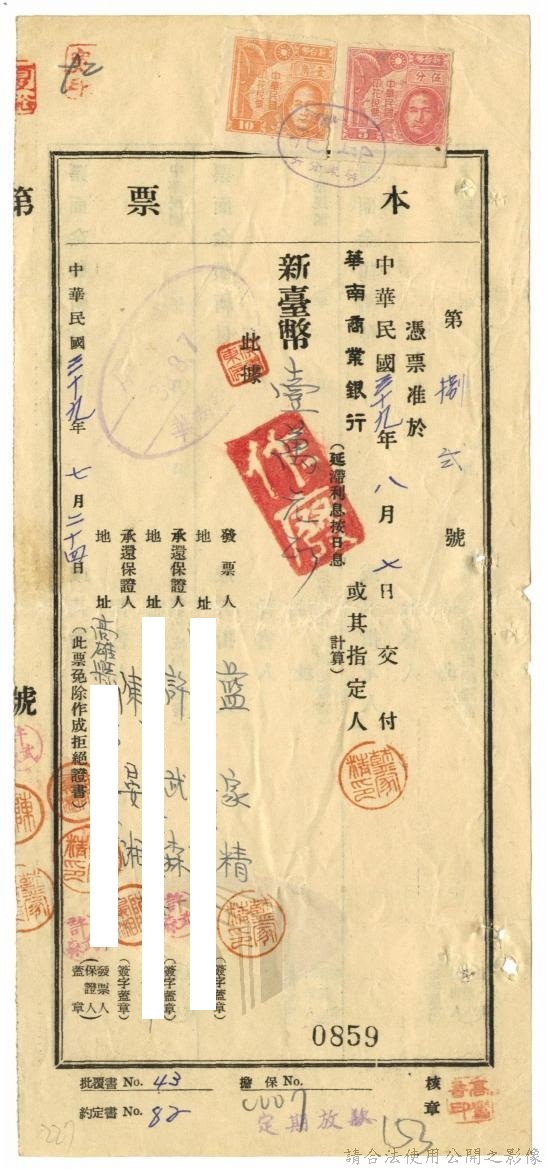 新台幣
伍分
中華民國
印花稅票
5
新台幣
壹角
中華民國
印花稅票
10
本票
第捌弍號
憑票准於
中華民國三十九年八月七日交付
華南商業銀行 或其指定人
(延滯利息按日息 計算)
新臺幣壹萬元
此據
作廢
發票人 藍家精
地址
承還保證人 許武森
地址
承還保證人 陳晏湘
地址 高雄縣
(此票免除作成拒絕證書)
中華民國三十九年七月二十四日
(簽字蓋章)
(簽字蓋章)
(簽字蓋章)
(發票人保證人蓋章)
第
號
0859
批覆書 No. 43
擔保 No.
約定書 No. 82
0007
定期放款
153
核章
227
請合法使用公開之影像